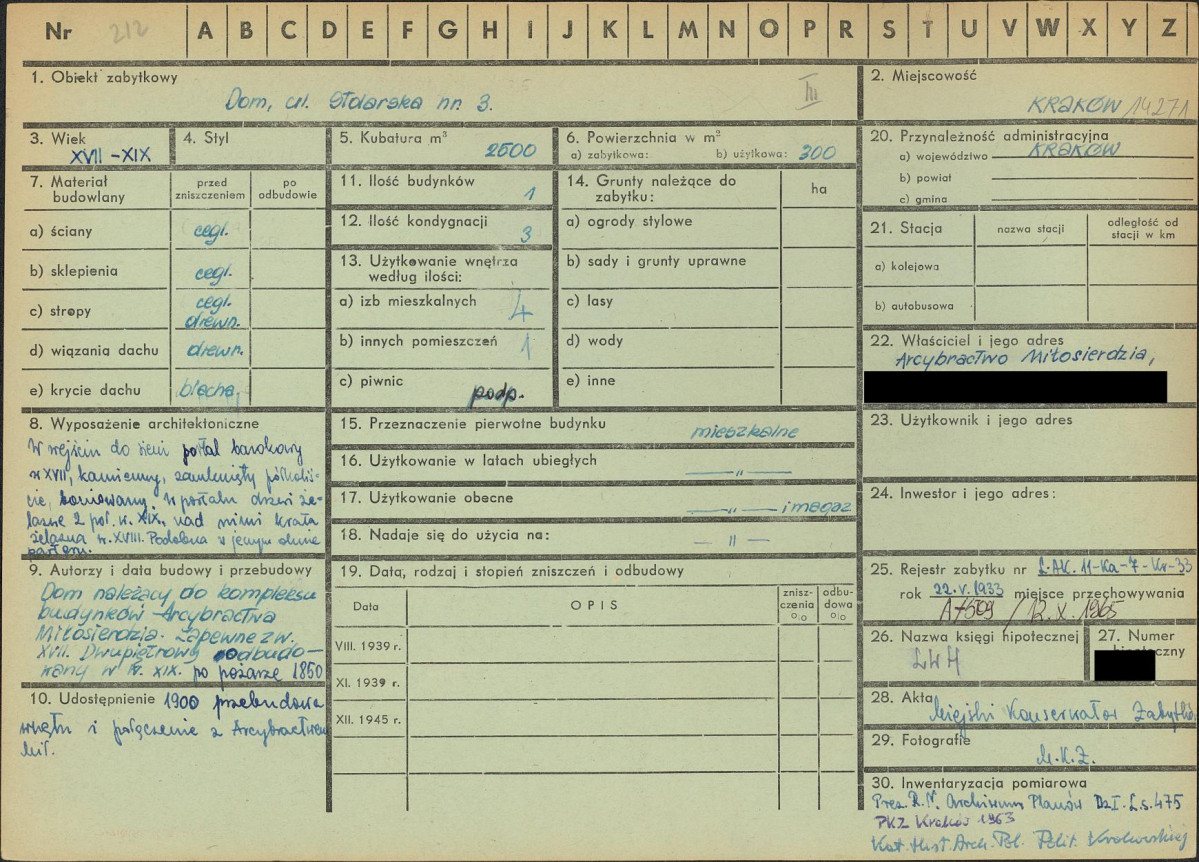 Nr 212 A B C D E F G H I J K L M N O P R S T U V W X Y Z
1. Obiekt zabytkowy
Dom, ul. Stolarska nr. 3.
III
2. Miejscowość
KRAKÓW 14271
3. Wiek
XVII-XIX
4. Styl
5. Kubatura m³
2500
6. Powierzchnia w m²
a) zabytkowa: b) użytkowa: 300
20. Przynależność administracyjna
a) województwo KRAKÓW
b) powiat
c) gmina
7. Materiał budowlany
przed zniszczeniem
po odbudowie
a) ściany cegl.
b) sklepienia cegl.
c) stropy cegl.
drewn.
d) wiązania dachu drewn.
e) krycie dachu blacha
11. Ilość budynków
1
12. Ilość kondygnacji
3
13. Użytkowanie wnętrza
według ilości:
a) izb mieszkalnych 4
b) innych pomieszczeń 1
c) piwnic podp.
14. Grunty należące do
zabytku:
ha
a) ogrody stylowe
b) sady i grunty uprawne
c) lasy
d) wody
e) inne
21. Stacja
nazwa stacji
odległość od
stacji w km
a) kolejowa
b) autobusowa
22. Właściciel i jego adres
Arcybractwo Miłosierdzia,
8. Wyposażenie architektoniczne
W wejściu do sieni portal barokowy
w XVII, kamienny, zamknięty półkoliś-
cie, boniowany. W portalu drzwi że-
lazne 2 poł. w. XIX, nad nimi krata
żelazna w. XVIII. Podobna w jednym oknie
parteru.
15. Przeznaczenie pierwotne budynku
mieszkalne
16. Użytkowanie w latach ubiegłych
—„—
17. Użytkowanie obecne
—„— i magaz
18. Nadaje się do użycia na:
—„—
23. Użytkownik i jego adres
24. Inwestor i jego adres:
9. Autorzy i data budowy i przebudowy
Dom należący do kompleksu
budynków Arcybractwa
Miłosierdzia. Zapewne z w.
XVII. Dwupiętrowy odbudo-
wany w w. XIX. po pożarze 1850
10. Udostępnienie 1900 przebudowa
wnętrz i połączenie z Arcybractwem
Mił.
19. Data, rodzaj i stopień zniszczeń i odbudowy
Data
OPIS
znisz-
czenia
%
odbu-
dowa
%
VIII. 1939 r.
XI. 1939 r.
XII. 1945 r.
25. Rejestr zabytku nr L.AK.11-Ka-7-Kr-33
rok 22.V.1933 miejsce przechowywania
A-509 / 12.X.1965
26. Nazwa księgi hipotecznej
LWH
27. Numer
hipoteczny
28. Akta
Miejski Konserwator Zabytków
29. Fotografie
M.K.Z.
30. Inwentaryzacja pomiarowa
Prez. R.N. Archiwum Planów Dz I. L.s. 475
PKZ Kraków 1963
Kat. Hist. Arch. Pol. Polit. Krakowskiej